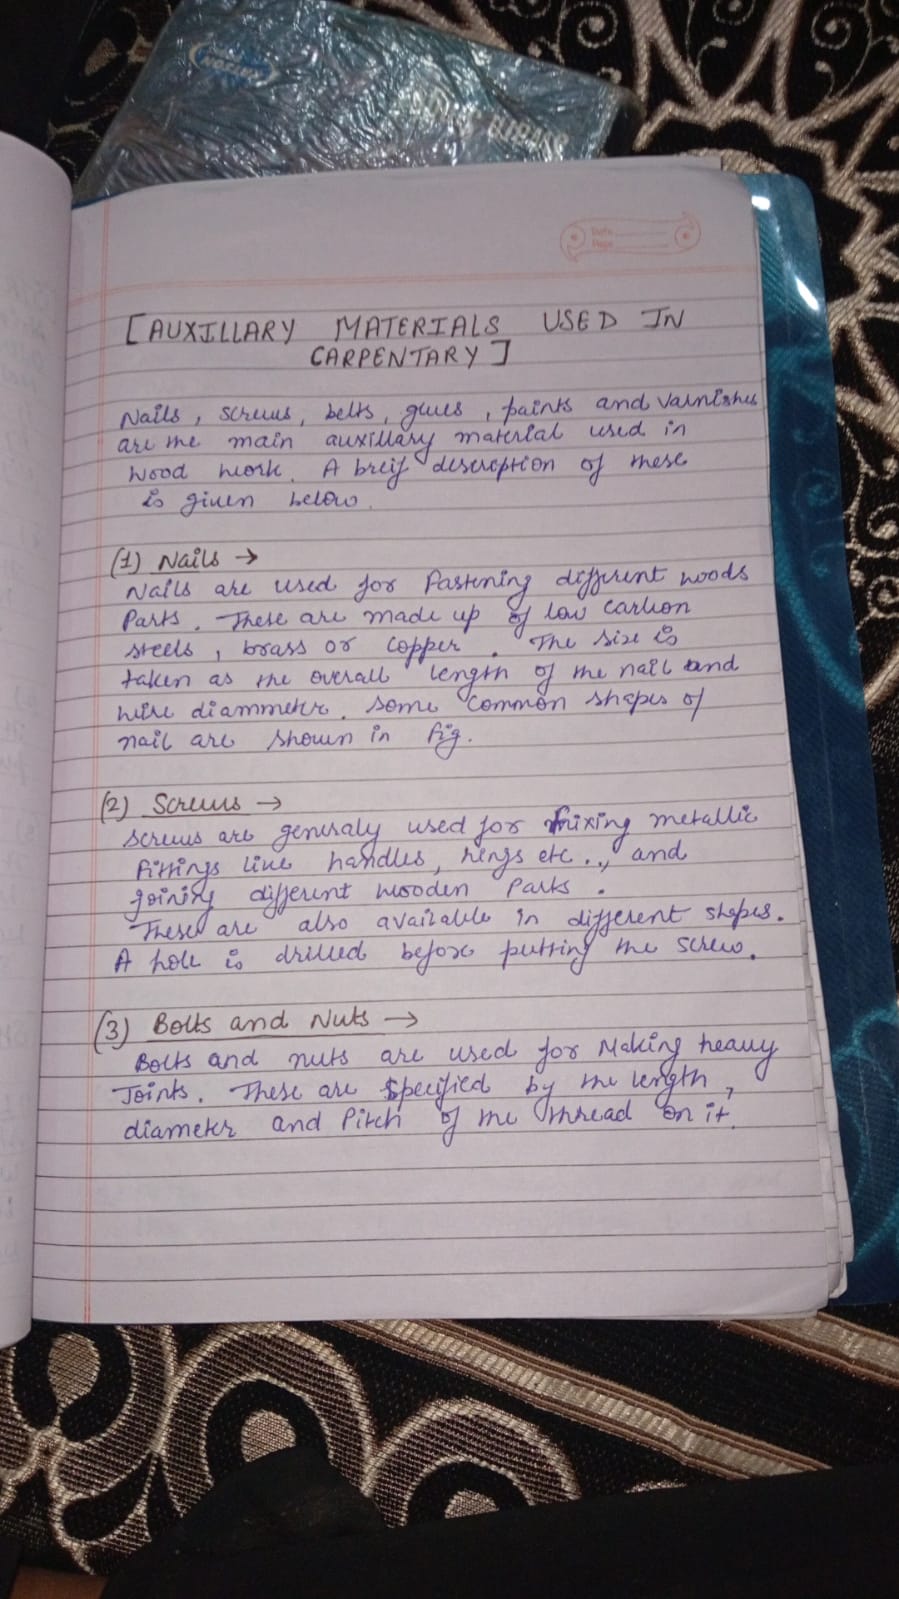 Date
Page
[AUXILLARY MATERIALS USED IN
CARPENTARY]
Nails, screws, belts, glues, paints and varnishes
are the main auxillary material used in
wood work. A breif descreption of these
is given below.
(1) Nails →
Nails are used for fastening different woods
Parts. These are made up of low carbon
steels, brass or copper. The size is
taken as the overall length of the nail and
wire diammeter. Some common shapes of
nail are shown in fig.
(2) Screws →
Screws are generaly used for fixing metallic
fittings like handles, hings etc.., and
joining different wooden Parts.
These are also available in different shapes.
A hole is drilled before putting the screw.
(3) Bolts and Nuts →
Bolts and nuts are used for Making heavy
Joints. These are specified by the length,
diameter and Pitch of the thread on it.